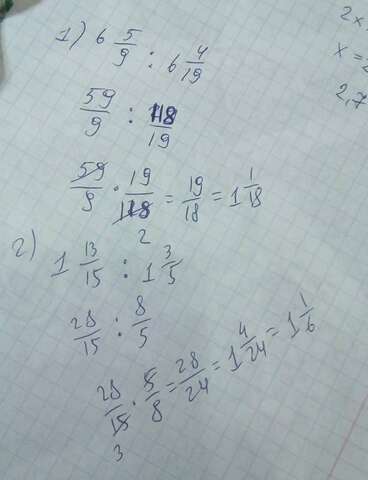 1) 6 5/9 : 6 4/19
2x
x =
59/9 : 118/19
2,7
59/9 · 19/118 = 19/18 = 1 1/18
2
2) 1 13/15 : 1 3/5
28/15 : 8/5
28/15 · 5/8 = 28/24 = 1 4/24 = 1 1/6
3